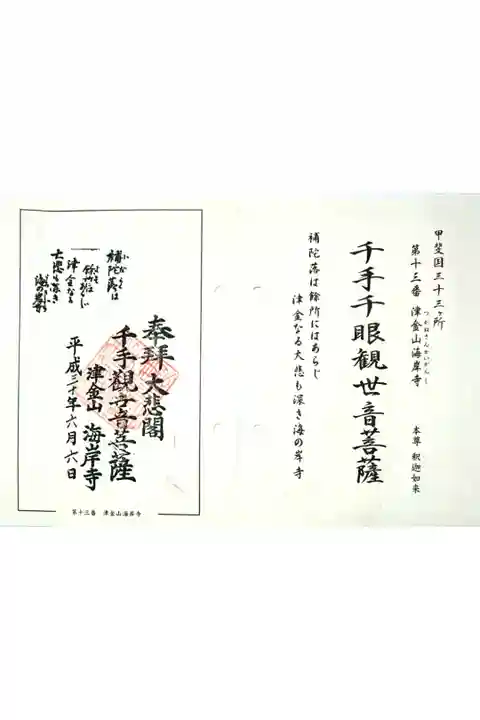 甲斐国三十三ヶ所
第十三番 津金山海岸寺
つがねさんかいがんじ
本尊 釈迦如来
千手千眼観世音菩薩
補陀落は餘所にはあらじ
津金なる大悲も深き海の岸寺
奉拝 大悲閣
千手観世音菩薩
津金山 海岸寺
平成三十年六月六日
補陀落は
餘所には
あらじ
津金なる
大悲も深き
海の岸寺
第十三番 津金山海岸寺